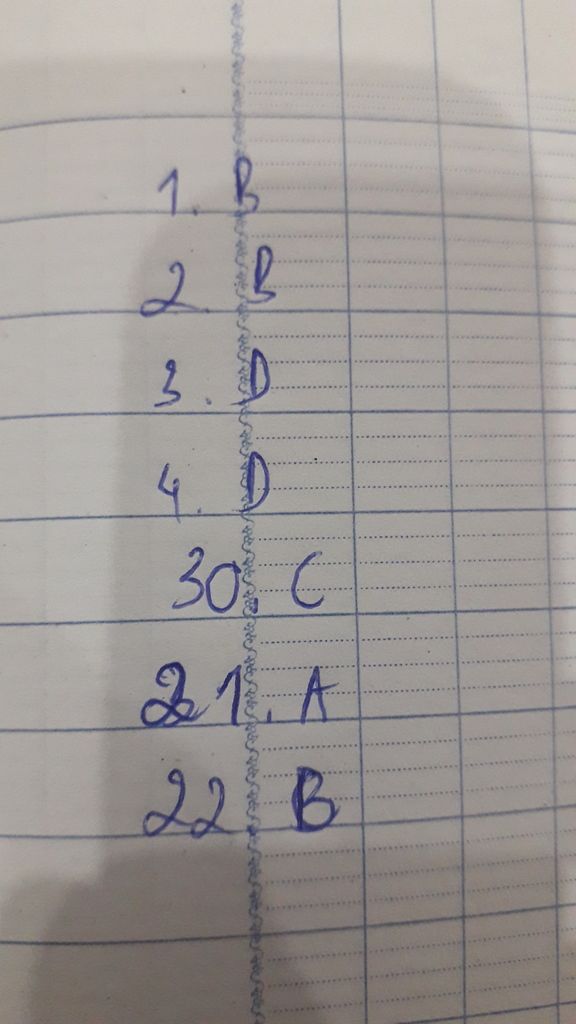 1. B
2. B
3. D
4. D
30. C
21. A
22 B